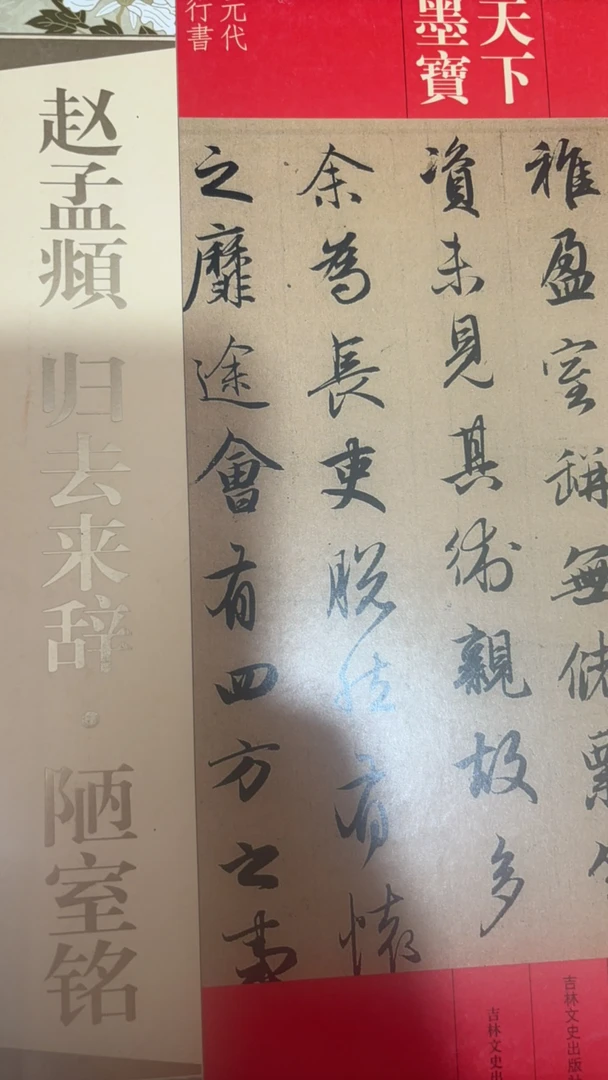 天下
墨寶
元代
行書
赵孟頫 归去来辞·陋室铭
稚盈室缾無儲粟
資未見其術親故多
余為長吏脱然有懷
之靡途會有四方之事
吉林文史出版社
吉林文史出